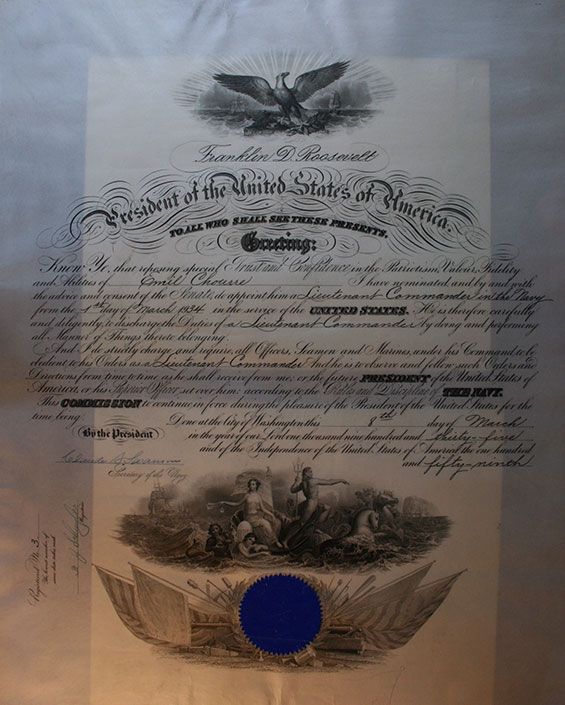 Franklin D. Roosevelt
President of the United States of America.
TO ALL WHO SHALL SEE THESE PRESENTS.
Greeting:
Know Ye, that reposing special Trust and Confidence in the Patriotism, Valour, Fidelity
and Abilities of Emil Chourré I have nominated, and by and with
the advice and consent of the Senate, do appoint him a Lieutenant Commander in the Navy
from the 1st day of March 1934 in the service of the UNITED STATES. He is therefore carefully
and diligently, to discharge the Duties of a Lieutenant Commander by doing and performing
all Manner of Things thereto belonging.
And I do strictly charge and require, all Officers, Seamen and Marines, under his Command, to be
obedient to his Orders as a Lieutenant Commander And he is to observe and follow such Orders and
Directions from time to time as he shall receive from me, or the future PRESIDENT of the United States of
America, or his Superior Officer set over him, according to the Rules and Discipline of THE NAVY.
This COMMISSION to continue in force during the pleasure of the President of the United States for the
time being.
Done at the City of Washington this 8th day of March
By the President
in the year of our Lord one thousand nine hundred and thirty-five
and of the Independence of the United States of America the one hundred
and fifty-ninth
Claude A. Swanson
Secretary of the Navy
Registered No. 3